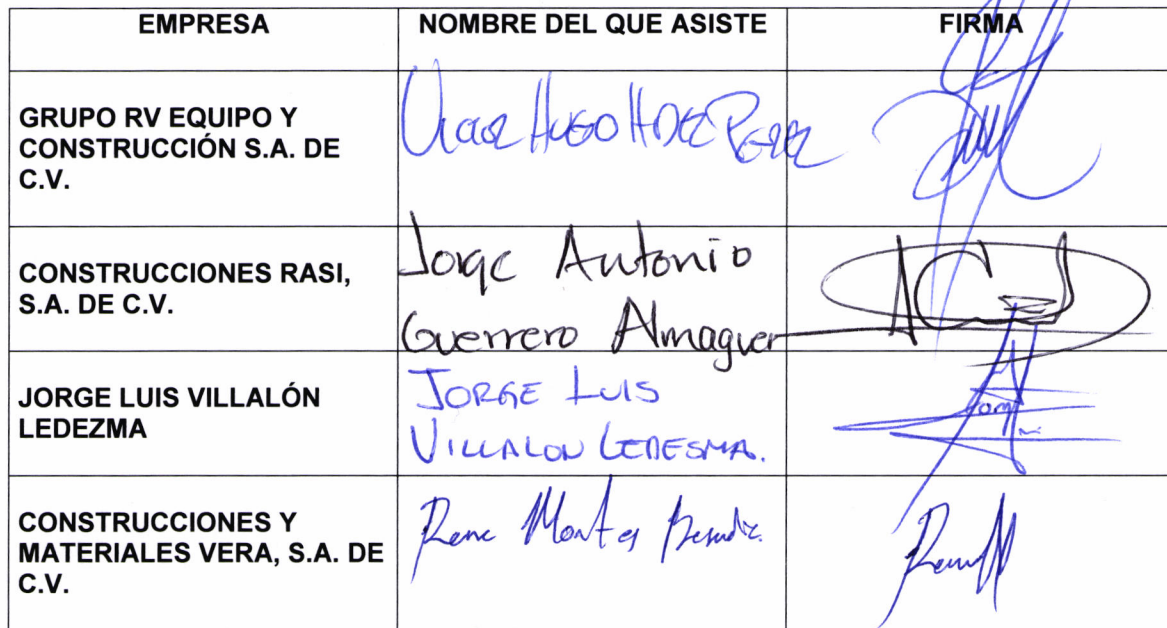 EMPRESA NOMBRE DEL QUE ASISTE FIRMA
GRUPO RV EQUIPO Y
CONSTRUCCIÓN S.A. DE
C.V.
HUGO HDEZ PEREZ
CONSTRUCCIONES RASI,
S.A. DE C.V.
Jorge Antonio
Guerrero Almaguer
JORGE LUIS VILLALÓN
LEDEZMA
JORGE LUIS
VILLALON LEDESMA.
CONSTRUCCIONES Y
MATERIALES VERA, S.A. DE
C.V.
Rene Montes